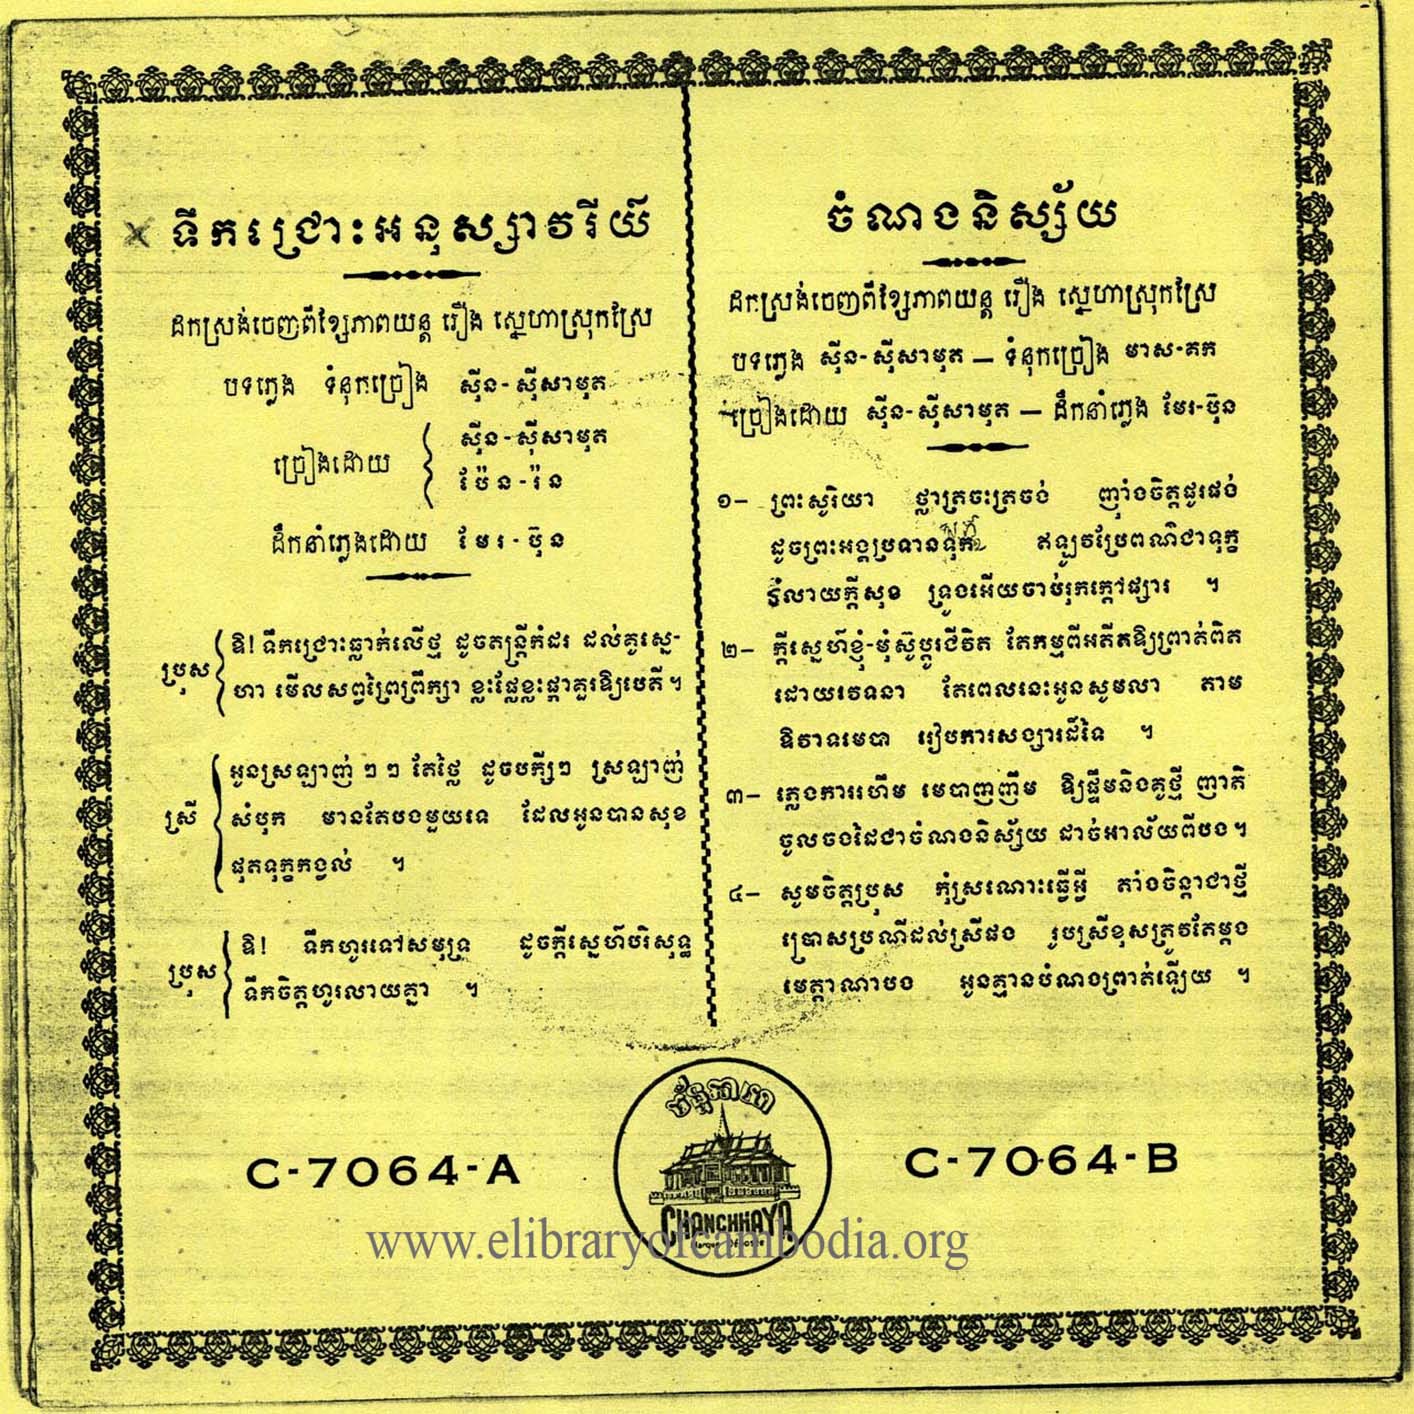 ទឹកជ្រោះអនុស្សាវរីយ៍
ដកស្រង់ចេញពីខ្សែភាពយន្ត រឿង ស្នេហាស្រុកស្រែ
បទភ្លេង ទំនុកច្រៀង ស៊ីន-ស៊ីសាមុត
ច្រៀងដោយ
ស៊ីន-ស៊ីសាមុត
ប៉ែន-រ៉ន
ដឹកនាំភ្លេងដោយ មែរ-ប៊ុន
ប្រុស
ឱ! ទឹកជ្រោះធ្លាក់លើថ្ម ដូចតន្ត្រីកំដរ ដល់គូស្នេ-
ហា មើលសព្វព្រៃព្រឹក្សា ខ្លះផ្លែខ្លះផ្កាគួរឱ្យបេតី ។
ស្រី
អូនស្រឡាញ់ ៗ ៗ តែថ្លៃ ដូចបក្សីៗ ស្រឡាញ់
សំបុក មានតែបងមួយទេ ដែលអូនបានសុខ
ផុតទុក្ខកង្វល់ ។
ប្រុស
ឱ! ទឹកហូរទៅសមុទ្រ ដូចក្តីស្នេហ៍បរិសុទ្ធ
ទឹកចិត្តហូរលាយគ្នា ។
C-7064-A
ចំណងនិស្ស័យ
ដកស្រង់ចេញពីខ្សែភាពយន្ត រឿង ស្នេហាស្រុកស្រែ
បទភ្លេង ស៊ីន-ស៊ីសាមុត — ទំនុកច្រៀង មាស-គក
ច្រៀងដោយ ស៊ីន-ស៊ីសាមុត — ដឹកនាំភ្លេង មែរ-ប៊ុន
១— ព្រះសូរិយា ថ្លាត្រចះត្រចង់ ញ៉ាំងចិត្តផូរផង់
ដូចព្រះអង្គប្រទានទុក ឥឡូវប្រែពណ៌ជាទុក្ខ
រំលាយក្តីសុខ ទ្រូងអើយចាប់រុកក្តៅផ្សារ ។
២— ក្តីស្នេហ៍ខ្ញុំ-មុំស៊ូប្តូរជីវិត តែកម្មពីអតីតឱ្យព្រាត់ពិត
ដោយវេទនា តែពេលនេះអូនសូមលា តាម
ឱវាទមេបា រៀបការសង្សារដ៏ទៃ ។
៣— ភ្លេងការរហឹម មេបាញញឹម ឱ្យផ្ទឹមនិងគូថ្មី ញាតិ
ចូលចងដៃជាចំណងនិស្ស័យ ដាច់អាល័យពីបង ។
៤— សូមចិត្តប្រុស កុំស្រណោះធ្វើអ្វី តាំងចិន្តាជាថ្មី
ប្រោសប្រណីដល់ស្រីផង រូបស្រីខុសត្រូវតែម្តង
មេត្តាណាបង អូនគ្មានបំណងព្រាត់ឡើយ ។
C-7064-B
ច័ន្ទឆាយា
CHANCHHAYA
www.elibraryofcambodia.org